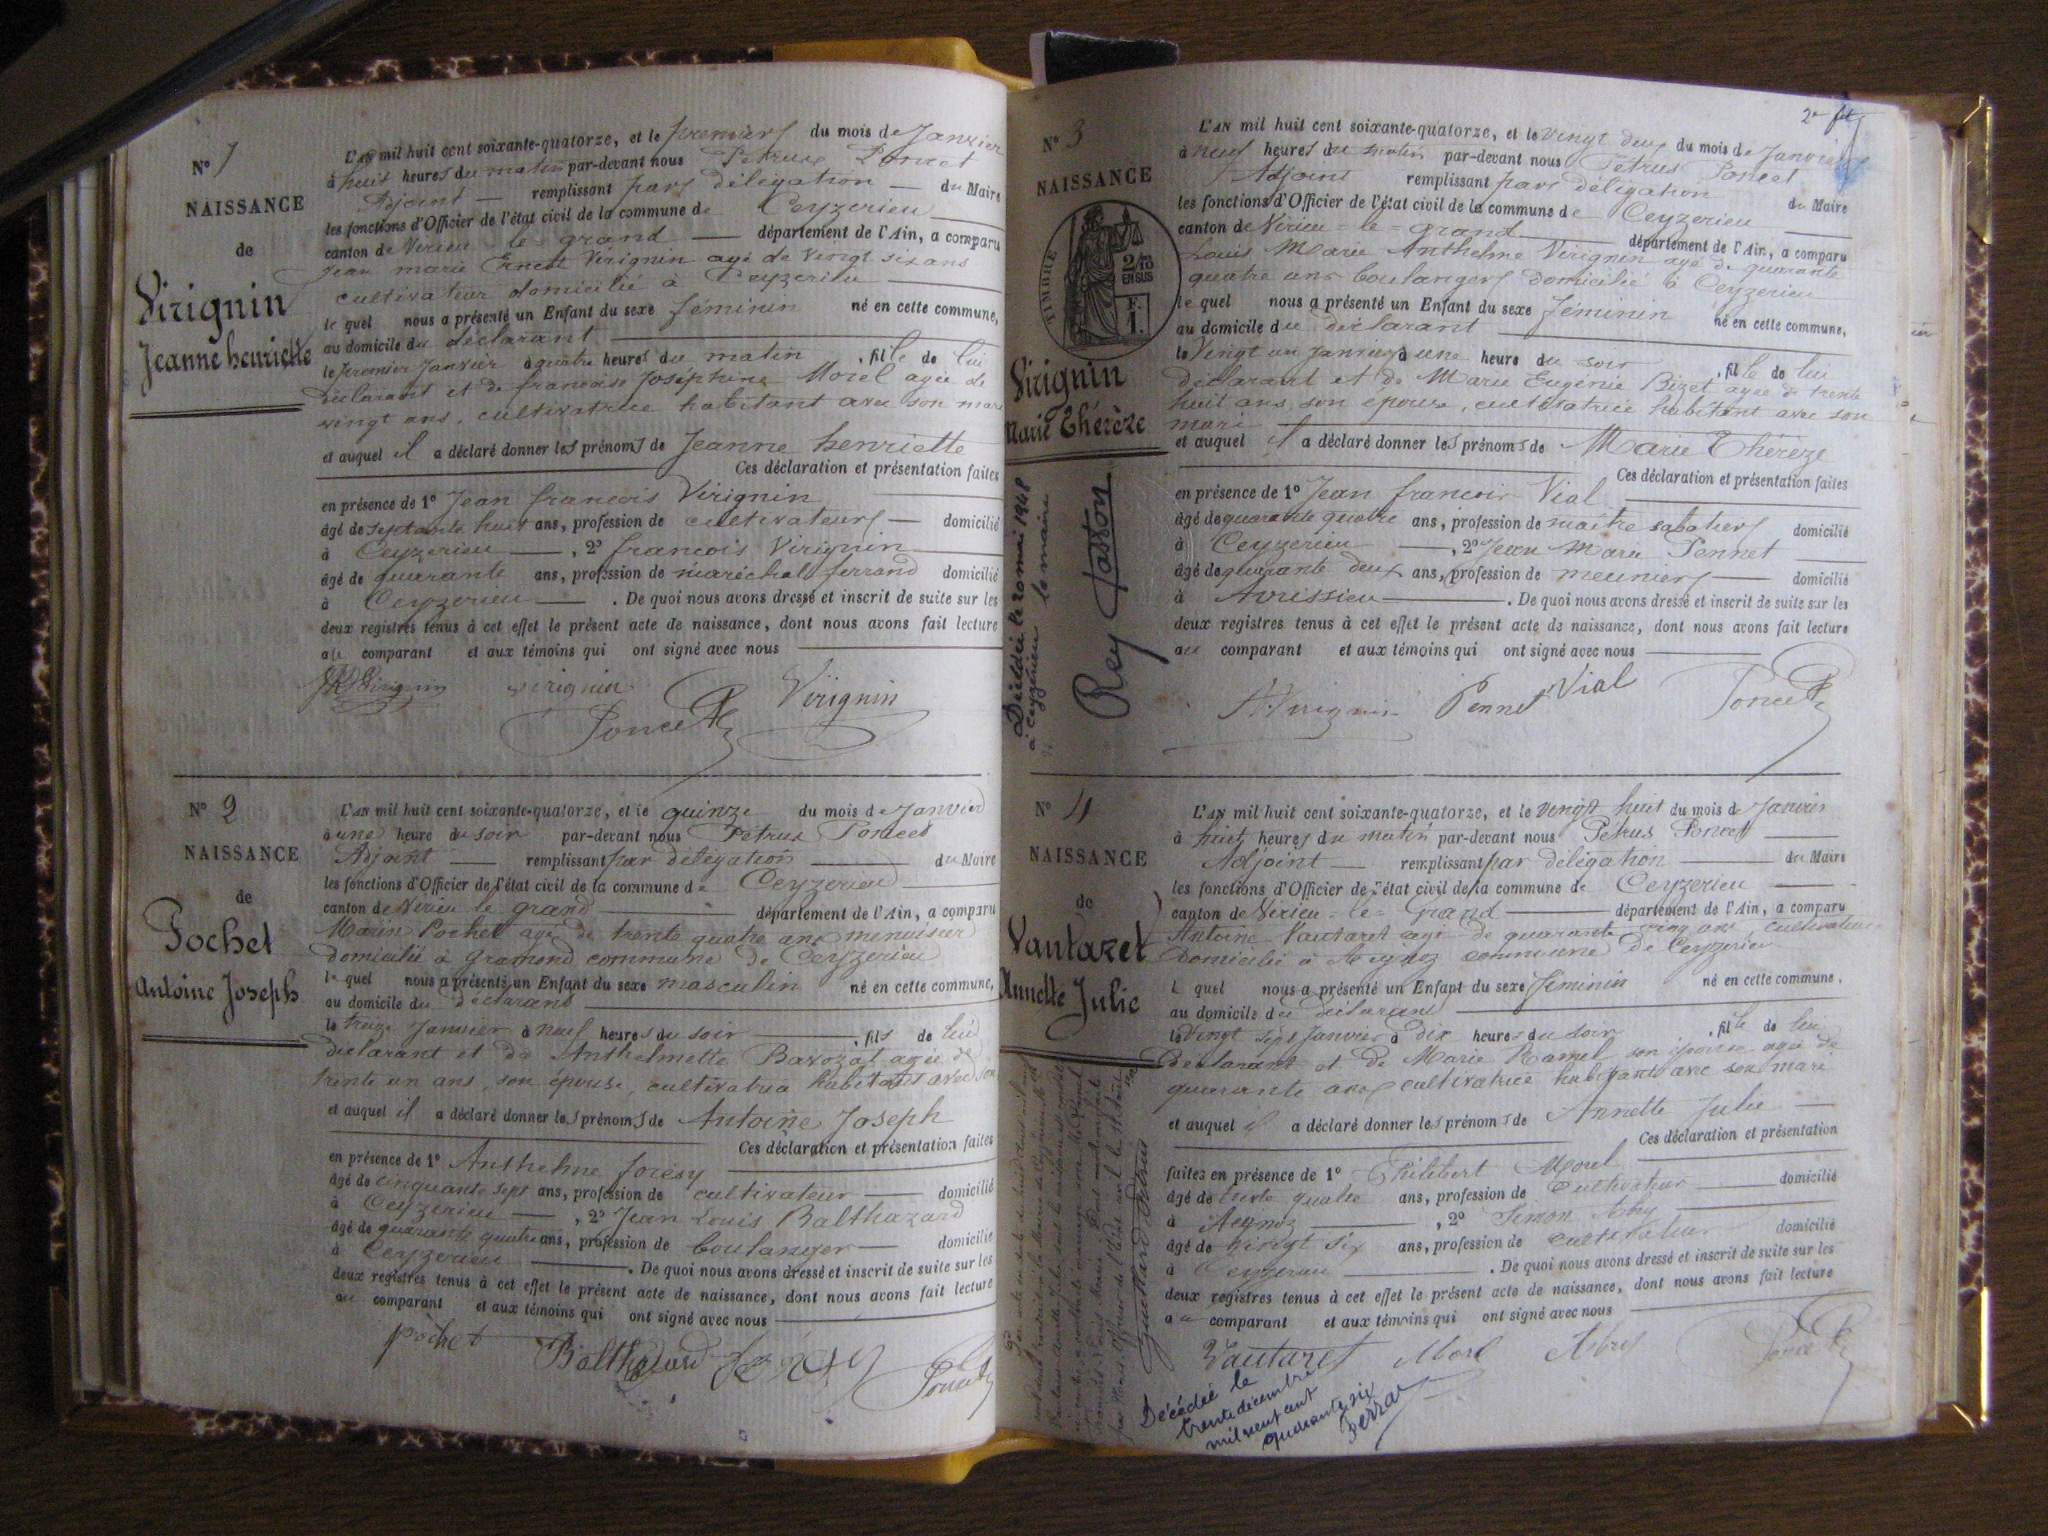 N° 1
NAISSANCE
de
Virignin
Jeanne henriette
L'AN mil huit cent soixante-quatorze, et le premier du mois de Janvier
à huit heures du matin par-devant nous Petrus Poncet
Adjoint — remplissant par délégation — du Maire
les fonctions d'Officier de l'état civil de la commune de Ceyzerieu
canton de Virieu-le-grand — département de l'Ain, a comparu
Jean marie Ernest Virignin agé de vingt six ans
cultivateur domicilié à Ceyzerieu
le quel nous a présenté un Enfant du sexe féminin né en cette commune,
au domicile du déclarant
le premier Janvier à quatre heures du matin, fille de lui
déclarant et de francoise Joséphine Morel agée de
vingt ans, cultivatrice habitant avec son mari
et auquel il a déclaré donner les prénoms de Jeanne henriette
Ces déclaration et présentation faites
en présence de 1° Jean francois Virignin
âgé de septante huit ans, profession de cultivateur — domicilié
à Ceyzerieu —, 2° francois Virignin
âgé de quarante ans, profession de maréchal ferrand domicilié
à Ceyzerieu —. De quoi nous avons dressé et inscrit de suite sur les
deux registres tenus à cet effet le présent acte de naissance, dont nous avons fait lecture
au comparant et aux témoins qui ont signé avec nous
Virignin virignin Virignin
Poncet
N° 2
NAISSANCE
de
Pochet
Antoine Joseph
L'AN mil huit cent soixante-quatorze, et le quinze du mois de Janvier
à une heure du soir par-devant nous Petrus Poncet
Adjoint — remplissant par délégation — du Maire
les fonctions d'Officier de l'état civil de la commune de Ceyzerieu
canton de Virieu le grand — département de l'Ain, a comparu
Marin Pochet agé de trente quatre ans menuisier
domicilié à gramond commune de Ceyzerieu
le quel nous a présenté un Enfant du sexe masculin né en cette commune,
au domicile du déclarant
le treize Janvier à neuf heures du soir —, fils de lui
déclarant et de Anthelmette Bavozat agée de
trente un ans, son épouse, cultivatrice habitant avec son
et auquel il a déclaré donner les prénoms de Antoine Joseph
Ces déclaration et présentation faites
en présence de 1° Anthelme forésy
âgé de cinquante sept ans, profession de cultivateur — domicilié
à Ceyzerieu —, 2° Jean Louis Balthazard
âgé de quarante quatre ans, profession de boulanger — domicilié
à Ceyzerieu —. De quoi nous avons dressé et inscrit de suite sur les
deux registres tenus à cet effet le présent acte de naissance, dont nous avons fait lecture
au comparant et aux témoins qui ont signé avec nous
pochet Balthazard Poncet
2e
N° 3
NAISSANCE
TIMBRE
2/10
EN SUS
F.
1.
Virignin
Marie Thérèze
Décédée le 20 mai 1948
à Ceyzérieu le maire
Rey Gaston
L'AN mil huit cent soixante-quatorze, et le vingt deux du mois de Janvier
à neuf heures du matin par-devant nous Petrus Poncet
Adjoint remplissant par délégation du Maire
les fonctions d'Officier de l'état civil de la commune de Ceyzerieu
canton de Virieu-le-grand — département de l'Ain, a comparu
Louis Marie Anthelme Virignin agé de quarante
quatre ans boulanger domicilié à Ceyzerieu
le quel nous a présenté un Enfant du sexe féminin né en cette commune,
au domicile du déclarant
le Vingt un Janvier à une heure du soir, fille de lui
déclarant et de Marie Eugénie Bizet agée de trente
huit ans, son épouse, cultivatrice habitant avec son
mari
et auquel il a déclaré donner les prénoms de Marie Thérèze
Ces déclaration et présentation faites
en présence de 1° Jean francois Vial
âgé de quarante quatre ans, profession de maître sabotier domicilié
à Ceyzerieu —, 2° Jean Marie Pennet
âgé de quarante deux ans, profession de meunier — domicilié
à Avrissieu —. De quoi nous avons dressé et inscrit de suite sur les
deux registres tenus à cet effet le présent acte de naissance, dont nous avons fait lecture
au comparant et aux témoins qui ont signé avec nous
Virignin Pennet Vial Poncet
N° 4
NAISSANCE
de
Vautaret
Annette Julie
L'AN mil huit cent soixante-quatorze, et le vingt huit du mois de Janvier
à huit heures du matin par-devant nous Petrus Poncet
Adjoint — remplissant par délégation — du Maire
les fonctions d'Officier de l'état civil de la commune de Ceyzerieu
canton de Virieu-le-Grand — département de l'Ain, a comparu
Antoine Vautaret agé de quarante cinq ans, cultivateur
domicilié à Aignoz commune de Ceyzerieu
le quel nous a présenté un Enfant du sexe féminin né en cette commune,
au domicile du déclarant
le vingt sept Janvier à dix heures du soir, fille de lui
déclarant et de Marie Ramel son épouse agée de
quarante ans cultivatrice habitant avec son mari
et auquel il a déclaré donner les prénoms de Annette Julie —
Ces déclaration et présentation
faites en présence de 1° Philibert Morel
âgé de trente quatre ans, profession de cultivateur — domicilié
à Aignoz —, 2° Simon Abry
âgé de vingt six ans, profession de cultivateur domicilié
à Ceyzerieu —. De quoi nous avons dressé et inscrit de suite sur les
deux registres tenus à cet effet le présent acte de naissance, dont nous avons fait lecture
au comparant et aux témoins qui ont signé avec nous
Vautaret Morel Poncet
Décédée le
trente décembre
mil neuf cent
quarante six